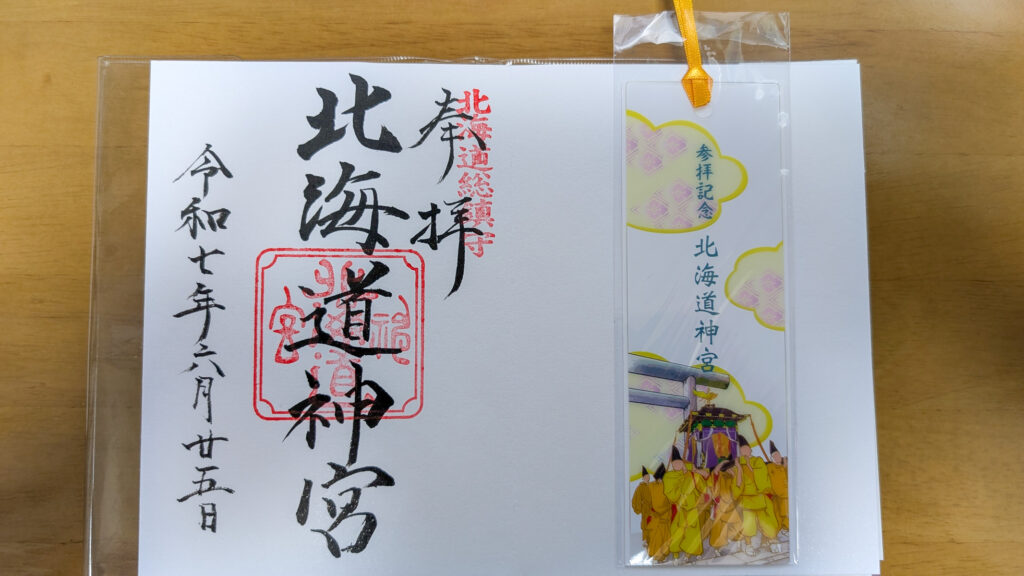 北海道総鎮守
奉拝
北海道神宮
令和七年六月廿五日
参拝記念
北海道神宮